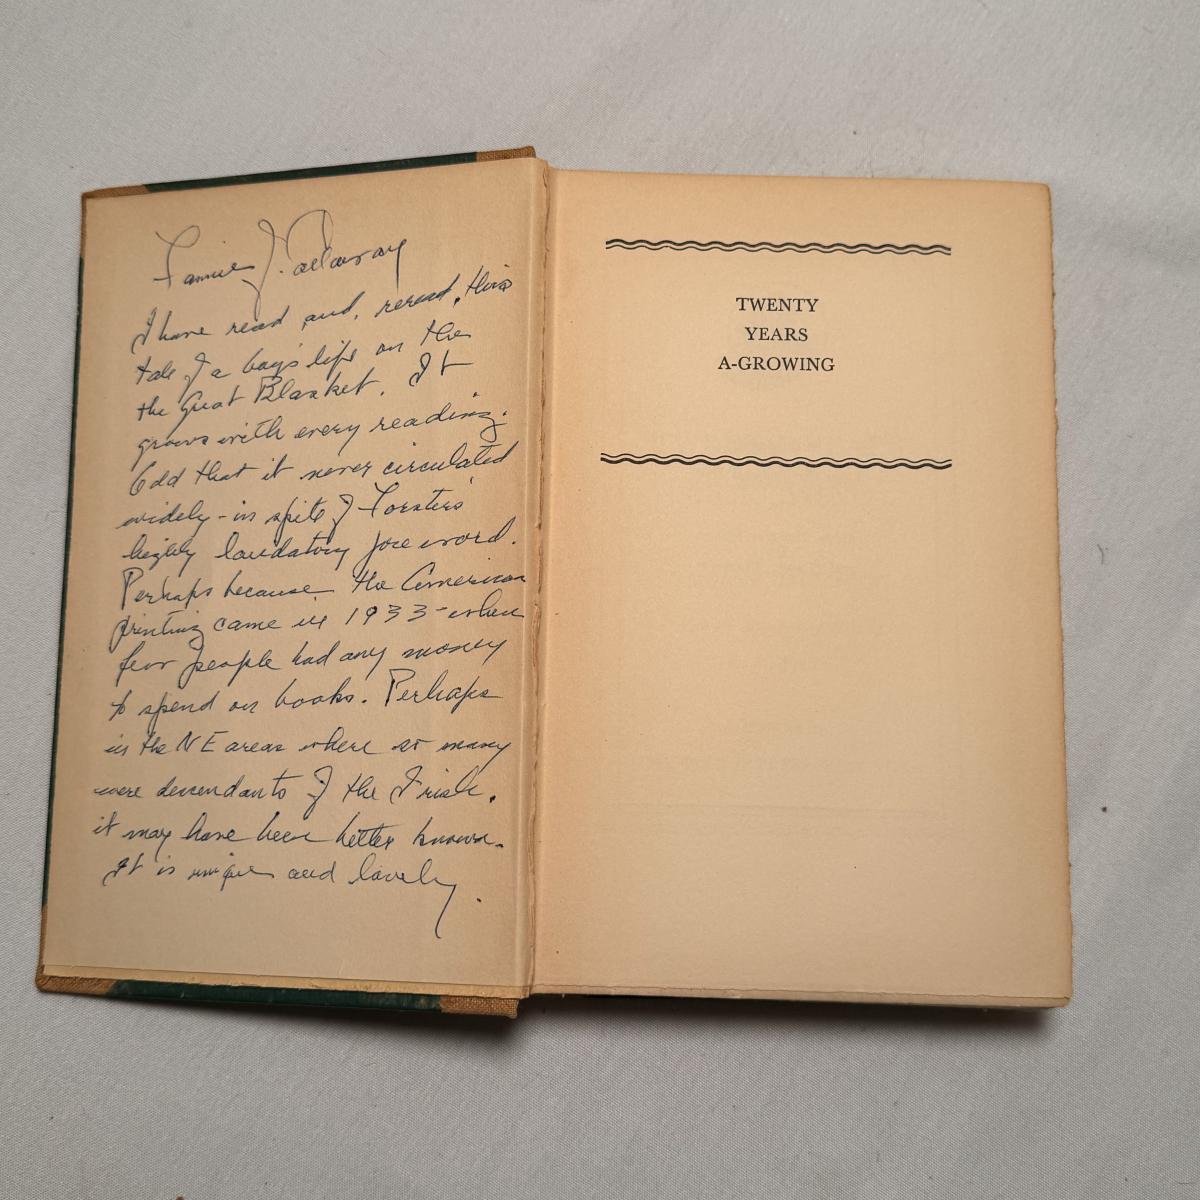 Fannie J. Callaway
I have read and, reread, this
tale of a boy's life on the
the Great Blasket. It
grows with every reading.
Odd that it never circulated
widely - in spite of Forster's
highly laudatory foreword.
Perhaps because the American
printing came in 1933 - when
few people had any money
to spend on books. Perhaps
in the NE areas where so many
were descendants of the Irish,
it may have been better known.
It is unique and lovely.
TWENTY
YEARS
A-GROWING